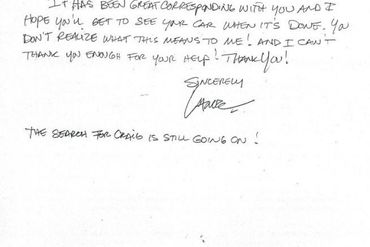 IT HAS BEEN GREAT CORRESPONDING WITH YOU AND I
HOPE YOU'LL GET TO SEE YOUR CAR WHEN IT'S DONE. YOU
DON'T REALIZE WHAT THIS MEANS TO ME! AND I CAN'T
THANK YOU ENOUGH FOR YOUR HELP! THANK YOU!
SINCERELY
THE SEARCH FOR CRAIG IS STILL GOING ON!